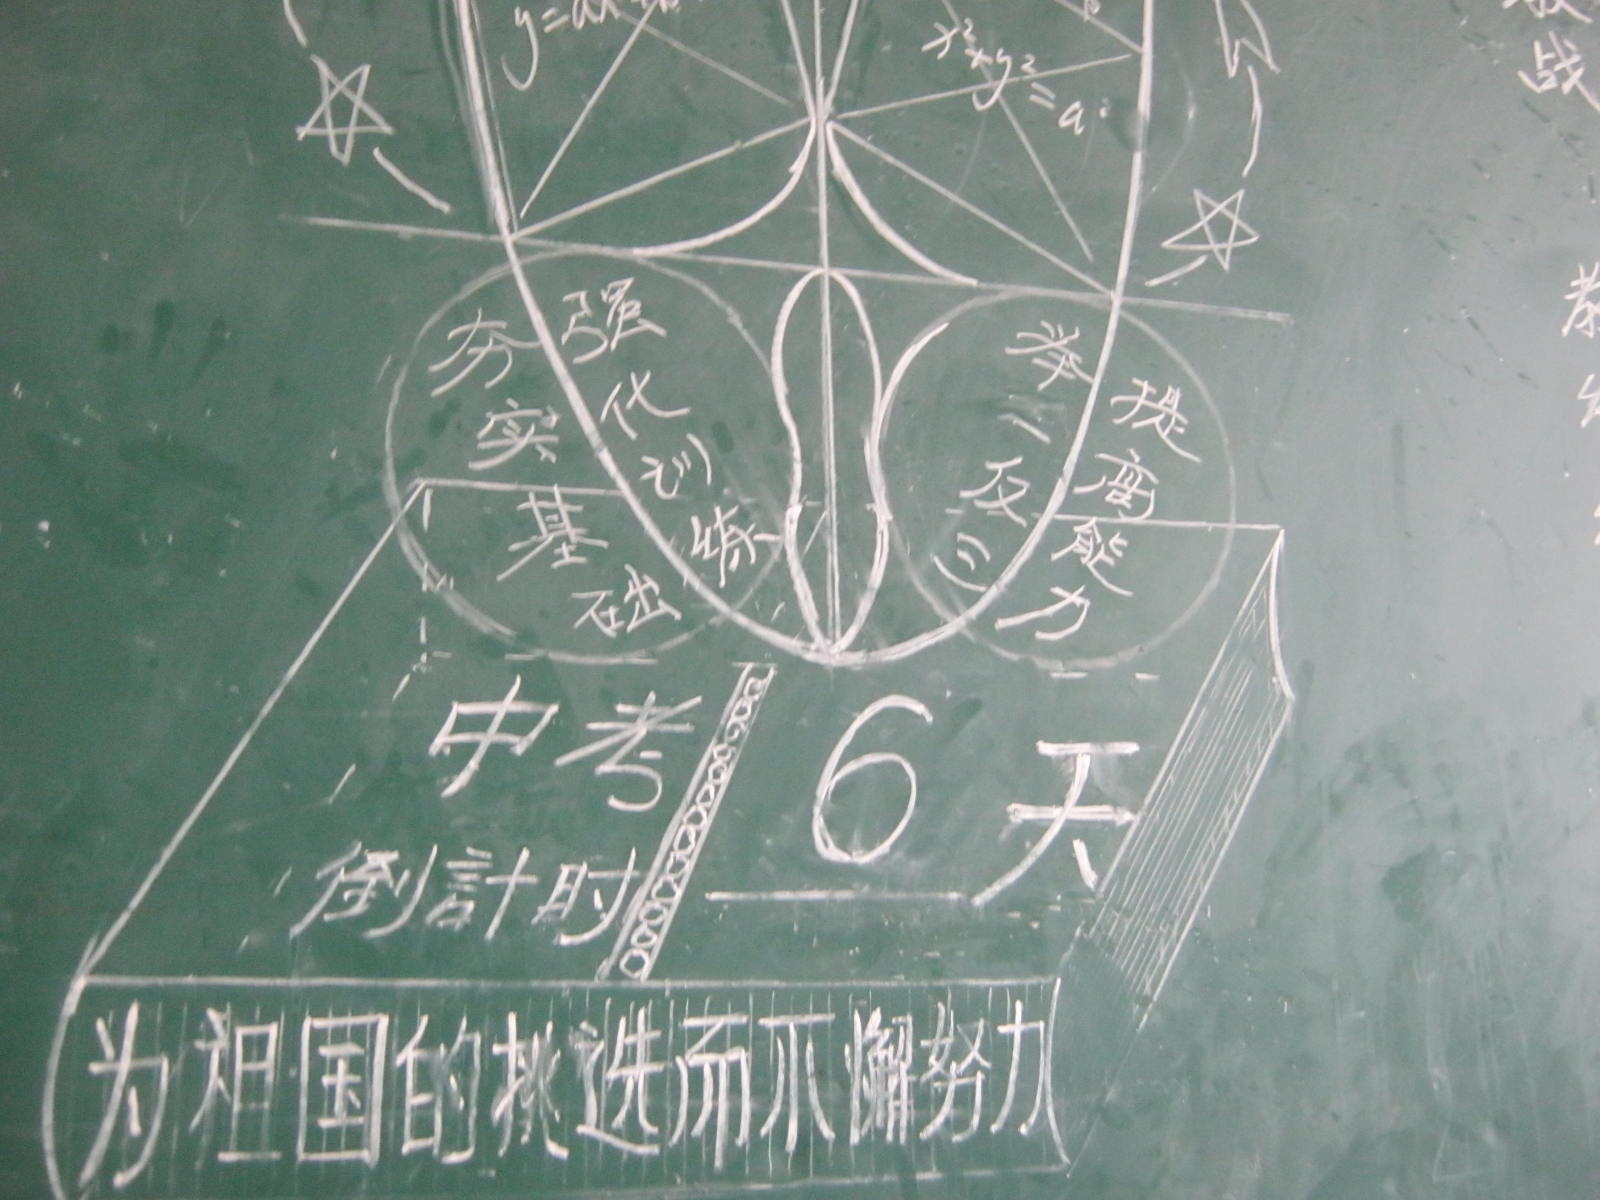 x²+y²=a
战
强化训练
夯实基础
举一反三
提高能力
中考
倒計时
6天
为祖国的挑选而不懈努力